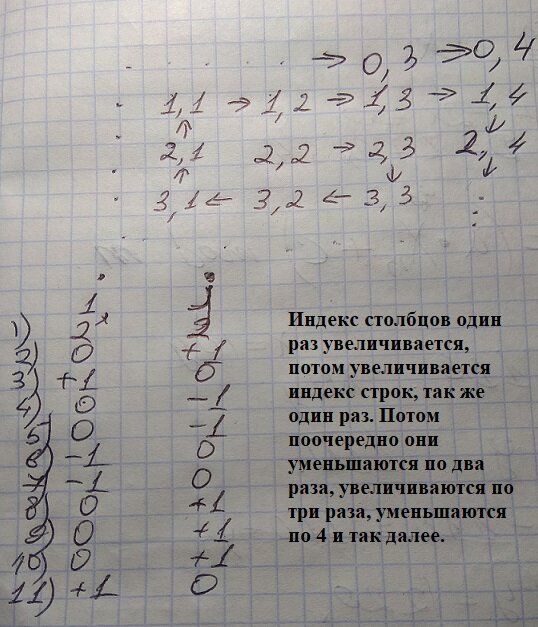 → 0,3 → 0,4
1,1 → 1,2 → 1,3 → 1,4
2,1 2,2 → 2,3 2,4
3,1 ← 3,2 ← 3,3
1) 2 2
2) 0 +1
3) +1 0
4) 0 -1
5) 0 -1
6) -1 0
7) -1 0
8) 0 +1
9) 0 +1
10) 0 +1
11) +1 0
Индекс столбцов один
раз увеличивается,
потом увеличивается
индекс строк, так же
один раз. Потом
поочередно они
уменьшаются по два
раза, увеличиваются по
три раза, уменьшаются
по 4 и так далее.